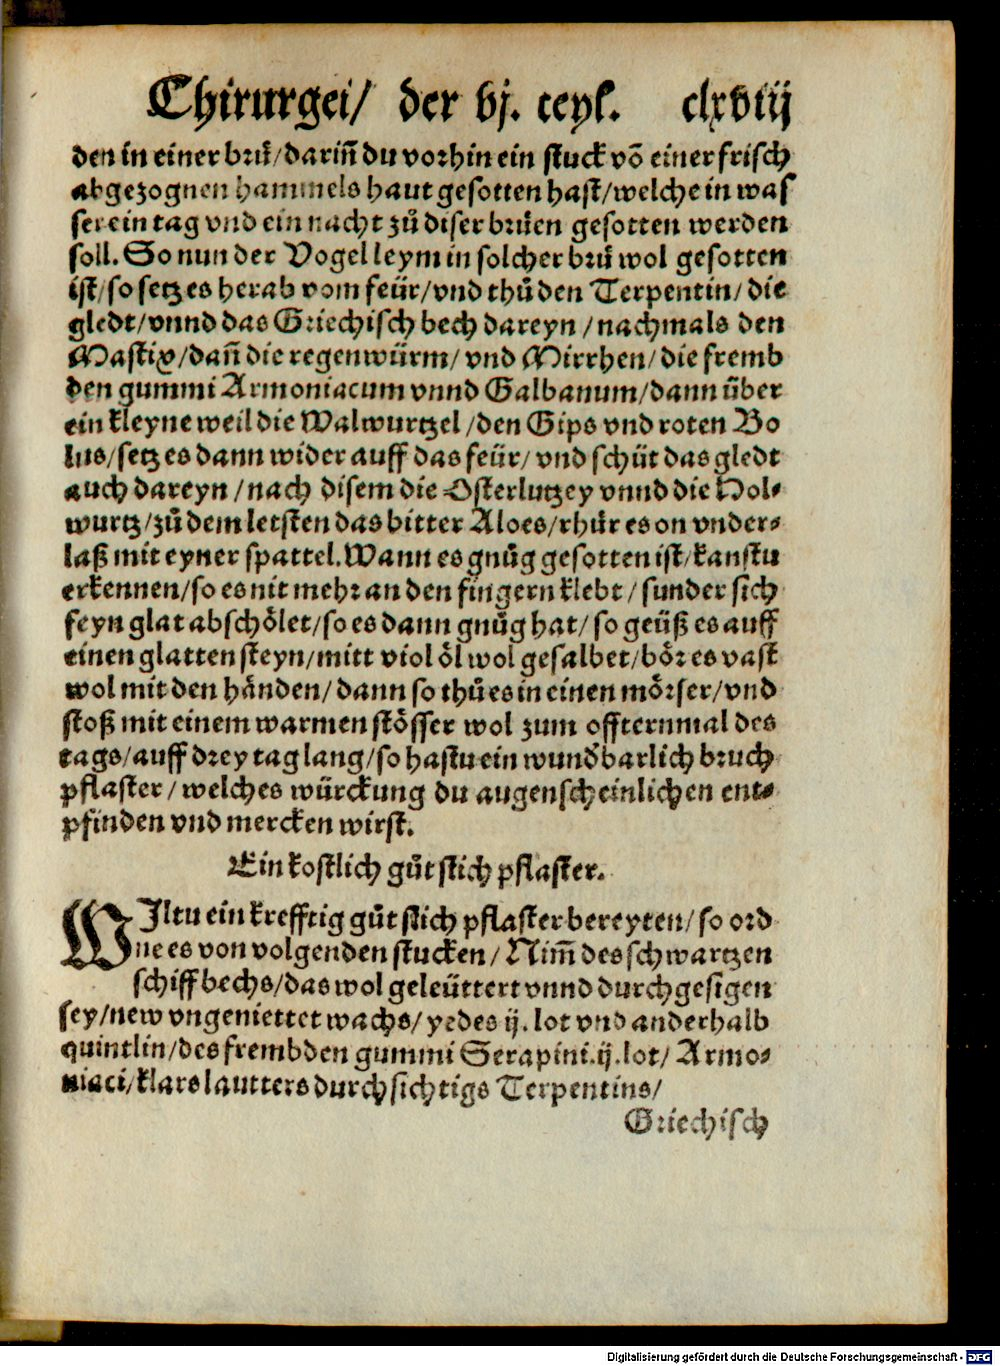 Chirurgei/ der vj. teyl. clxviij
den in einer brů/darin̄ du vorhin ein stuck vō einer frisch
abgezognen hammels haut gesotten hast/welche in was
ser ein tag vnd ein nacht zů diser brůen gesotten werden
soll. So nun der Vogelleym in solcher brů wol gesotten
ist/so setz es herab vom feür/vnd thů den Terpentin/die
gledt/vnnd das Griechisch bech dareyn/nachmals den
Mastix/dan̄ die regenwürm/vnd Mirrhen/die fremb
den gummi Armoniacum vnnd Galbanum/dann über
ein kleyne weil die Walwurtzel/den Gips vnd roten Bo
lus/setz es dann wider auff das feür/vnd schüt das gledt
auch dareyn/nach disem die Osterlutzey vnnd die Hol⸗
wurtz/zů dem letsten das bitter Aloes/rhůr es on vnder⸗
laß mit eyner spattel. Wann es gnůg gesotten ist/kanstu
erkennen/so es nit mehr an den fingern klebt/sunder sich
feyn glat abschölet/so es dann gnůg hat/so geüß es auff
einen glatten steyn/mitt viol öl wol gesalbet/bör es vast
wol mit den händen/dann so thů es in einen mörser/vnd
stoß mit einem warmen stösser wol zum offternmal des
tags/auff drey tag lang/so hastu ein wundbarlich bruch
pflaster/welches würckung du augenscheinlichen ent⸗
pfinden vnd mercken wirst.
Ein kostlich gůt stich pflaster.
WIltu ein krefftig gůt stich pflaster bereyten/so ord
ne es von volgenden stucken/Nim̄ des schwartzen
schiffbechs/das wol geleüttert vnnd durchgesigen
sey/new vngeniettet wachs/yedes ij. lot vnd anderhalb
quintlin/des frembden gummi Serapini.ij. lot/Armo⸗
niaci/klars lautters durchsichtigs Terpentins/
Griechisch
Digitalisierung gefördert durch die Deutsche Forschungsgemeinschaft - DFG